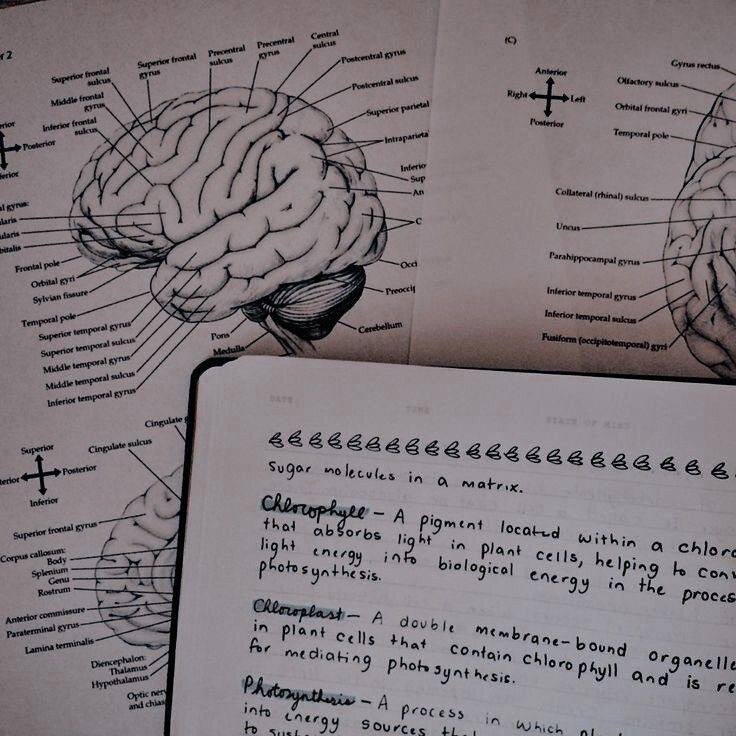 r 2
Superior frontal
sulcus
Superior frontal
gyrus
Precentral
sulcus
Precentral
gyrus
Central
sulcus
Postcentral gyrus
Postcentral sulcus
Superior parietal
Intraparieta
Inferio
Sup
An
C
Occi
Preoccip
Cerebellum
Middle frontal
gyrus
Inferior frontal
sulcus
erior
Posterior
ferior
al gyrus:
ularis
ularis
bitalis
Frontal pole
Orbital gyri
Sylvian fissure
Temporal pole
Superior temporal gyrus
Superior temporal sulcus
Middle temporal gyrus
Middle temporal sulcus
Inferior temporal gyrus
Pons
Medulla
(C)
Anterior
Right
Left
Posterior
Gyrus rectus
Olfactory sulcus
Orbital frontal gyri
Temporal pole
Collateral (rhinal) sulcus
Uncus
Parahippocampal gyrus
Inferior temporal gyrus
Inferior temporal sulcus
Fusiform (occipitotemporal) gyri
Superior
terior
Posterior
Inferior
Cingulate g
Cingulate sulcus
Superior frontal gyrus
Corpus callosum:
Body
Splenium
Genu
Rostrum
Anterior commissure
Paraterminal gyrus
Lamina terminalis
Diencephalon:
Thalamus
Hypothalamus
Optic nerv
and chias
sugar molecules in a matrix.
Chlorophyll – A pigment located within a chloro
that absorbs light in plant cells, helping to conv
light energy into biological energy in the proces
photosynthesis.
Chloroplast – A double membrane-bound organelle
in plant cells that contain chlorophyll and is re
for mediating photosynthesis.
Photosynthesis – A process in which pla
into energy sources tha
to sust